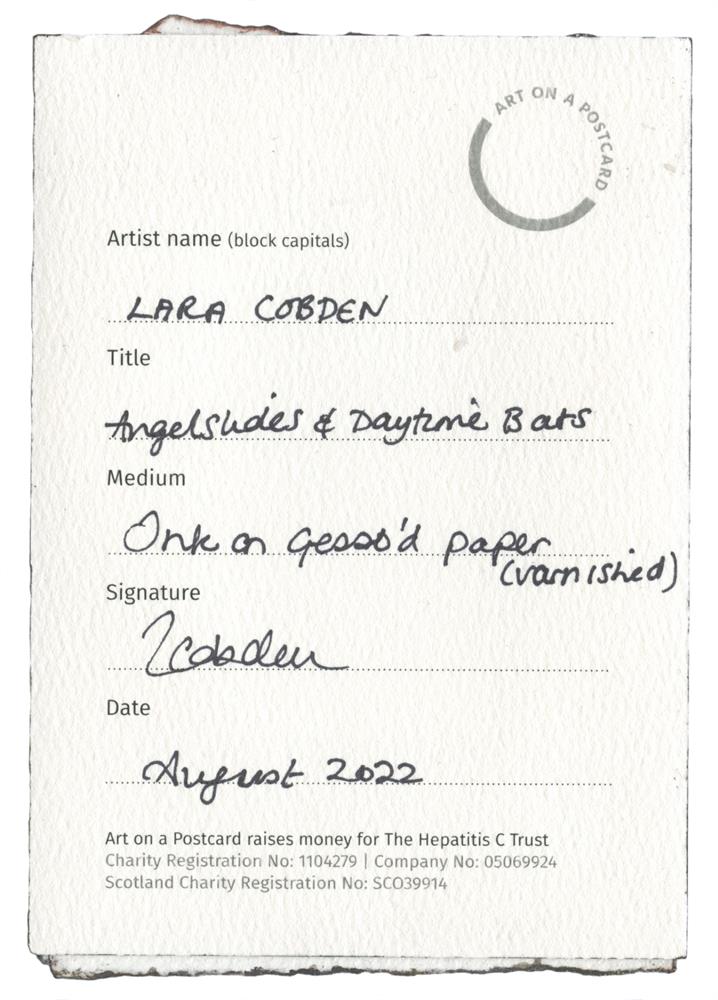 ART ON A POSTCARD
Artist name (block capitals)
LARA COBDEN
Title
Angelslides & Daytime Bats
Medium
Ink on gesso'd paper
(varnished)
Signature
LCobden
Date
August 2022
Art on a Postcard raises money for The Hepatitis C Trust
Charity Registration No: 1104279 | Company No: 05069924
Scotland Charity Registration No: SCO39914